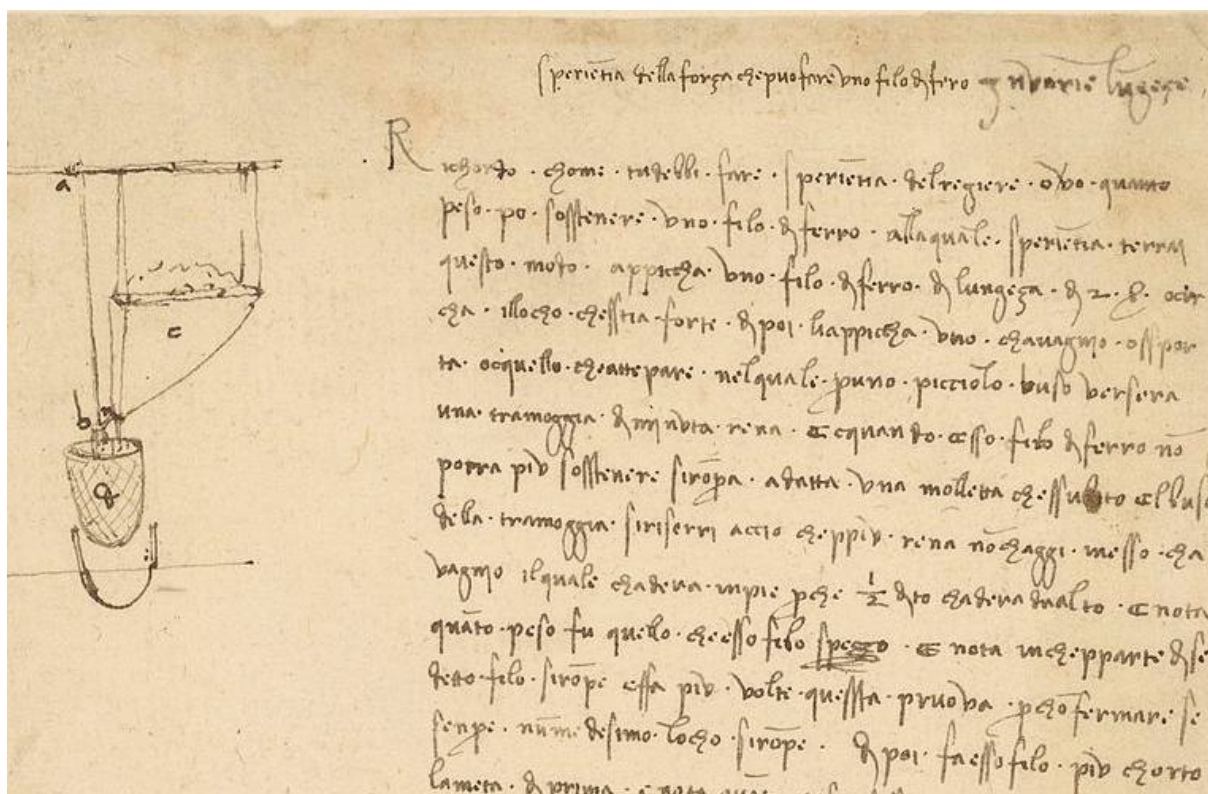 speriētia della força che puo fare vno filo di fero in varie lūgeçe
a
Richordo · chome · tu debbi · fare · speriētia · del regiere · ovo · quanto
peso · po · sosstenere · vno · filo · di ferro · alla quale · speriētia · terrai
questo · modo · appiccha · vno · filo · di ferro · di lungeça · di 2 · br · ocir
cha · illocho · chesstia · forte · di poi · li appiccha · vno · chavagnio · osspor
c
ta · o cquello · che atte pare · nel quale · per uno · picciolo · buso versera
una · tramoggia · di minvta · rena · E cquando · esso · filo di ferro nō
b
porra piv sosstenere sirōpera · adatta · vna molletta che ssubito el buso
d
della · tramoggia · si riserri accio che ppiv · rena nō chaggi · inesso · cha
vagnio il quale chadera · in pie perche 1/2 dito chadera da alto · E nota
quāto · peso fu quello · che esso filo speçço · E nota in che pparte di se
detto · filo · si rōpe e ffa piv · volte · quessta · pruova · per chōfermare · se
senpre · nūmedesimo · locho · si rōpe · di poi · fa esso filo · piv chorto
la meta · di prima · e nota